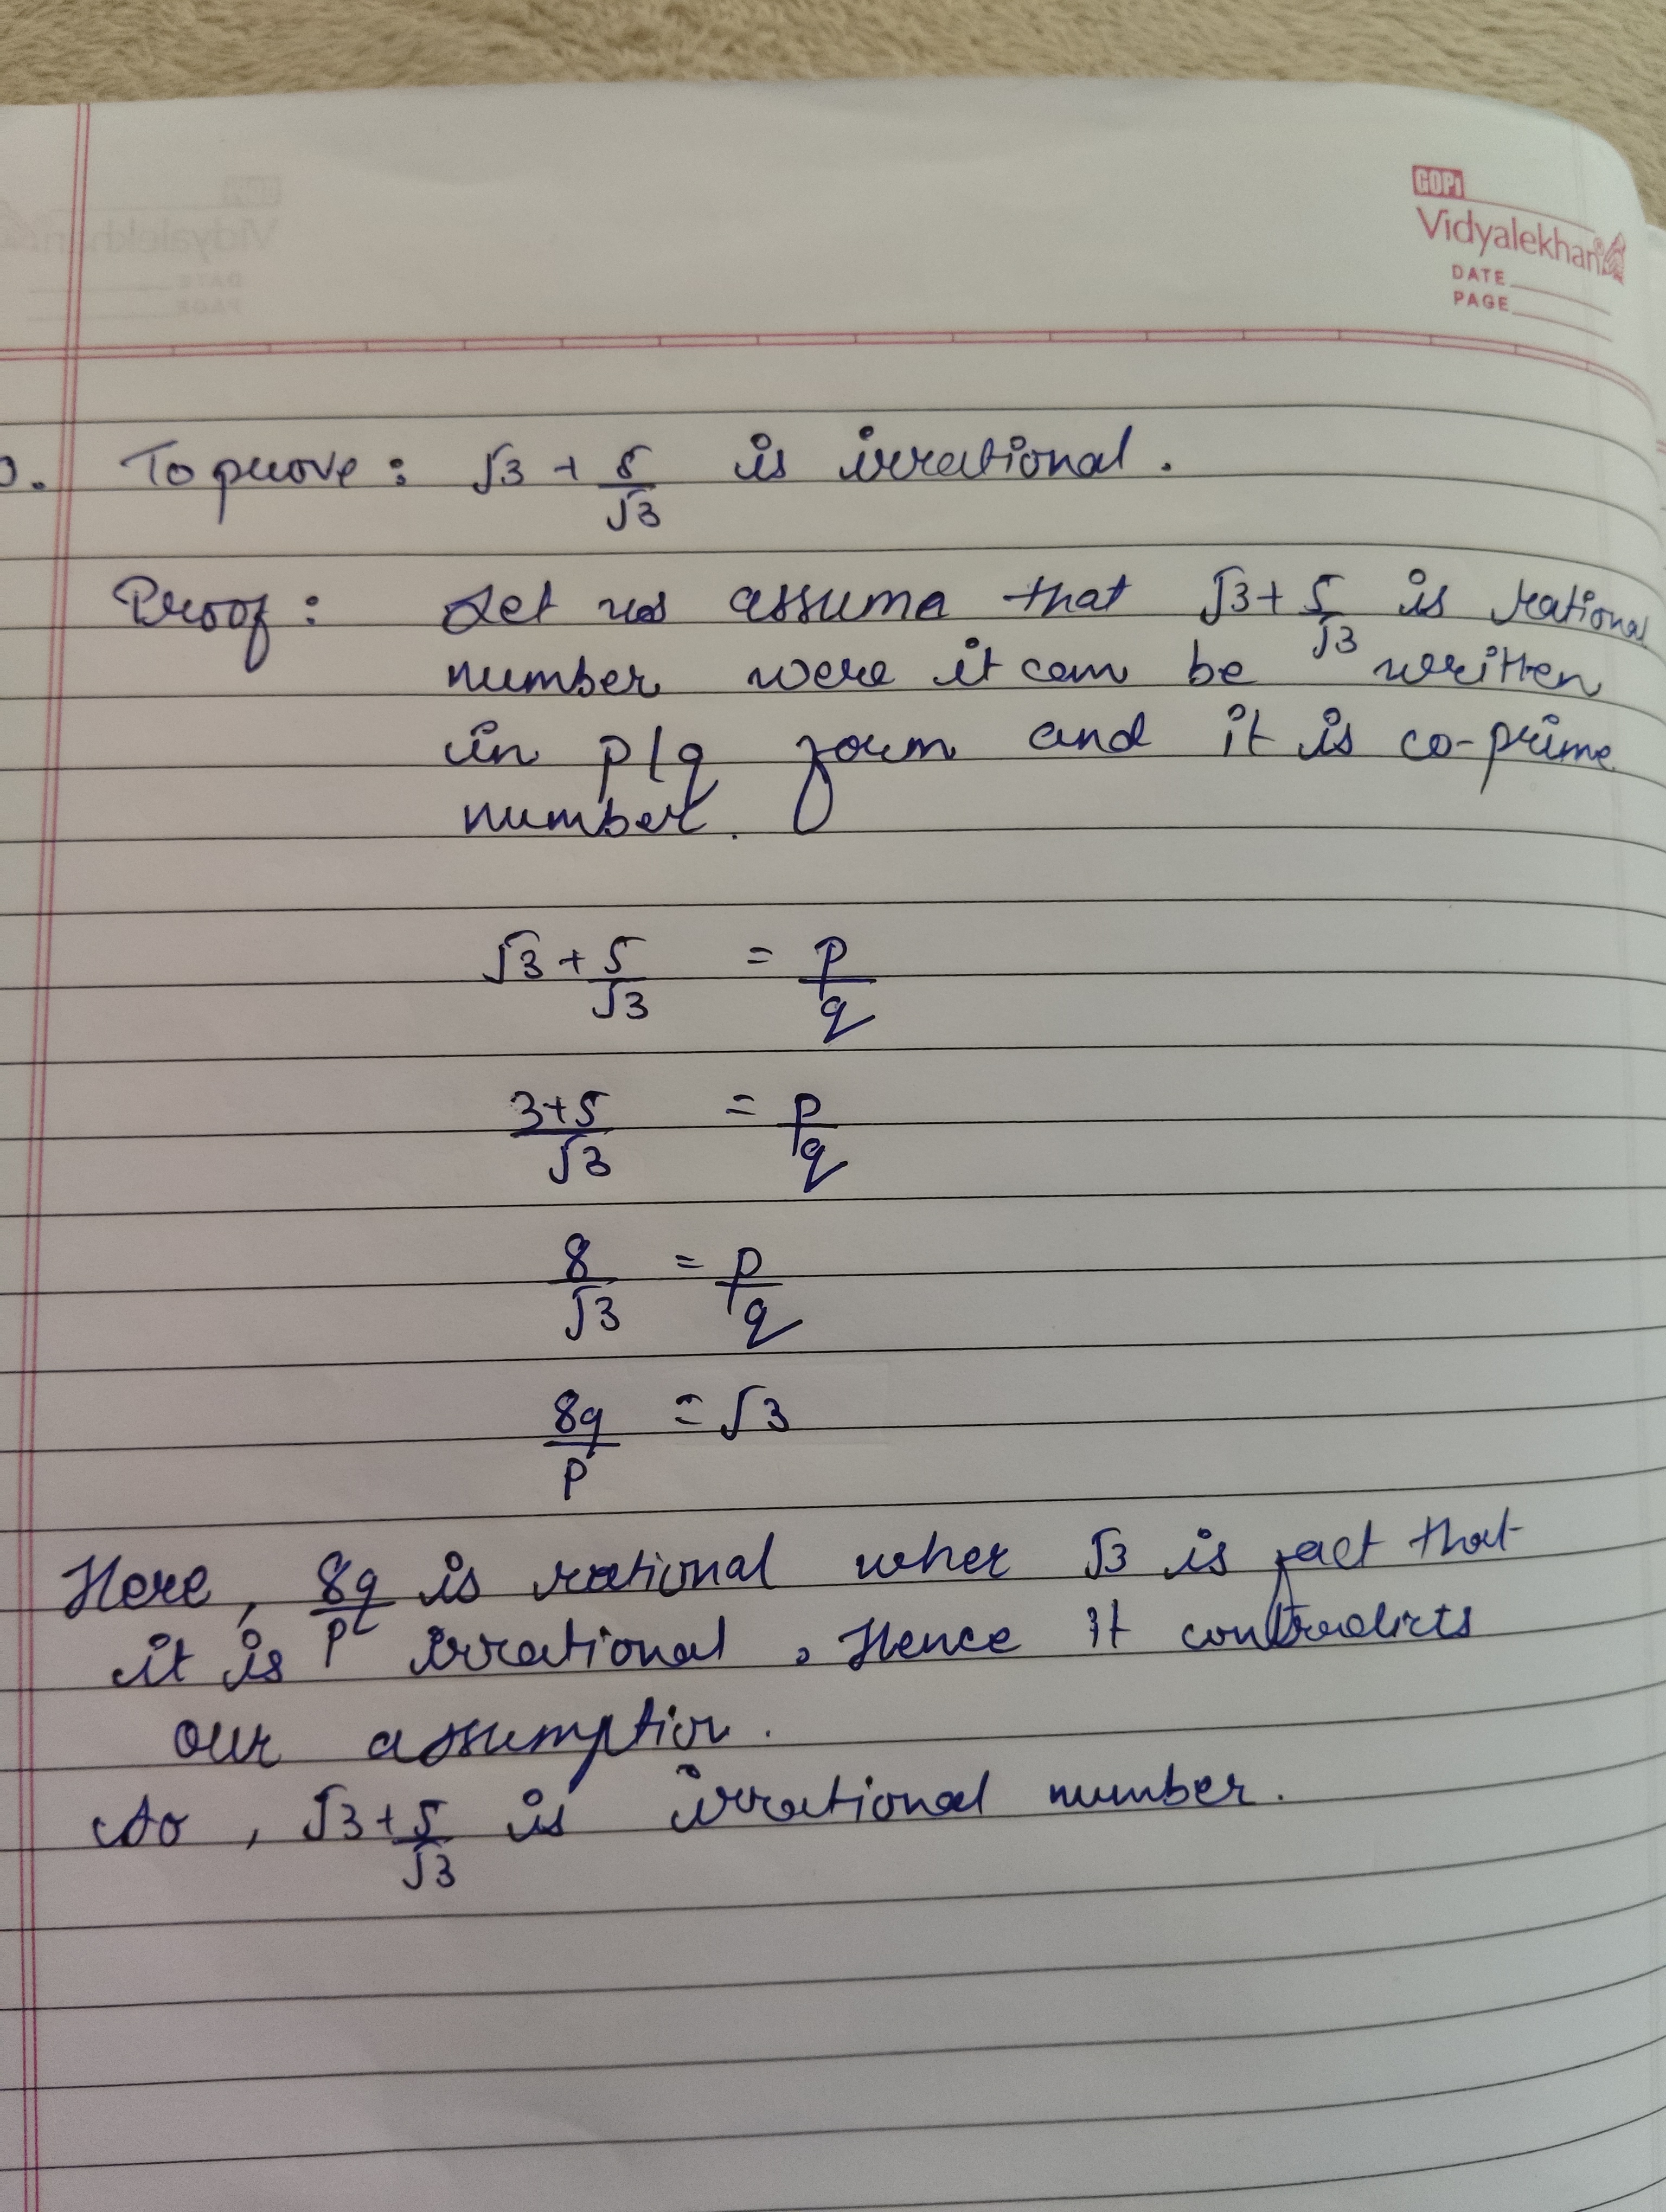 GOPI
Vidyalekhan
DATE
PAGE
To prove : √3 + 5/√3 is irrational.
Proof : Let us assume that √3 + 5/√3 is rational
number were it can be written
in p/q form and it is co-prime
number.
√3 + 5/√3 = p/q
3+5/√3 = p/q
8/√3 = p/q
8q/p = √3
Here, 8q/p is rational wher √3 is fact that
it is irrational. Hence it contradicts
our assumption.
So, √3 + 5/√3 is irrational number.